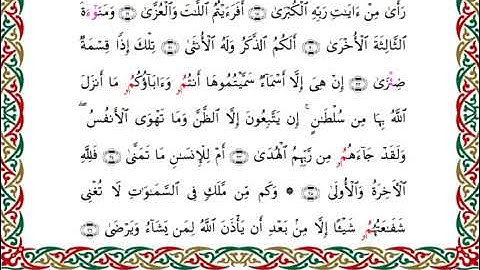 رَأَىٰ مِنْ ءَايَـٰتِ رَبِّهِ ٱلْكُبْرَىٰ ۝١٨ أَفَرَءَيْتُمُ ٱللَّـٰتَ وَٱلْعُزَّىٰ ۝١٩ وَمَنَوٰٓءَةَ
ٱلثَّالِثَةَ ٱلْأُخْرَىٰ ۝٢٠ أَلَكُمُ ٱلذَّكَرُ وَلَهُ ٱلْأُنثَىٰ ۝٢١ تِلْكَ إِذًا قِسْمَةٌ
ضِئْزَىٰ ۝٢٢ إِنْ هِىَ إِلَّا أَسْمَآءٌ سَمَّيْتُمُوهَا أَنتُمُۥ وَءَابَآؤُكُمُۥ مَا أَنزَلَ
ٱللَّهُ بِهَا مِن سُلْطَـٰنٍ ۚ إِن يَتَّبِعُونَ إِلَّا ٱلظَّنَّ وَمَا تَهْوَى ٱلْأَنفُسُ ۖ
وَلَقَدْ جَآءَهُمُۥ مِن رَبِّهِمُ ٱلْهُدَىٰ ۝٢٣ أَمْ لِلْإِنسَـٰنِ مَا تَمَنَّىٰ ۝٢٤ فَلِلَّهِ
ٱلْـَٔاخِرَةُ وَٱلْأُولَىٰ ۝٢٥ ۞ وَكَم مِن مَلَكٍ فِى ٱلسَّمَـٰوَٰتِ لَا تُغْنِى
شَفَـٰعَتُهُمُۥ شَيْـًٔا إِلَّا مِنۢ بَعْدِ أَن يَأْذَنَ ٱللَّهُ لِمَن يَشَآءُ وَيَرْضَىٰ ۝٢٦